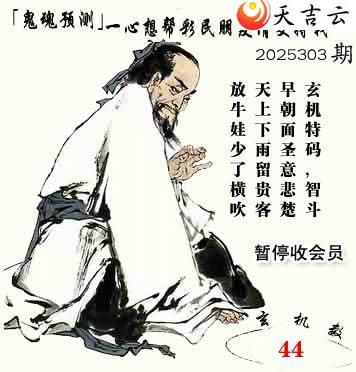 天吉云
「鬼魂预测」一心想帮彩民朋
2025303期
玄机特码,智斗
早朝面圣意悲楚
天上下雨留贵客
放牛娃少了横吹
暂停收会员
玄机数
44